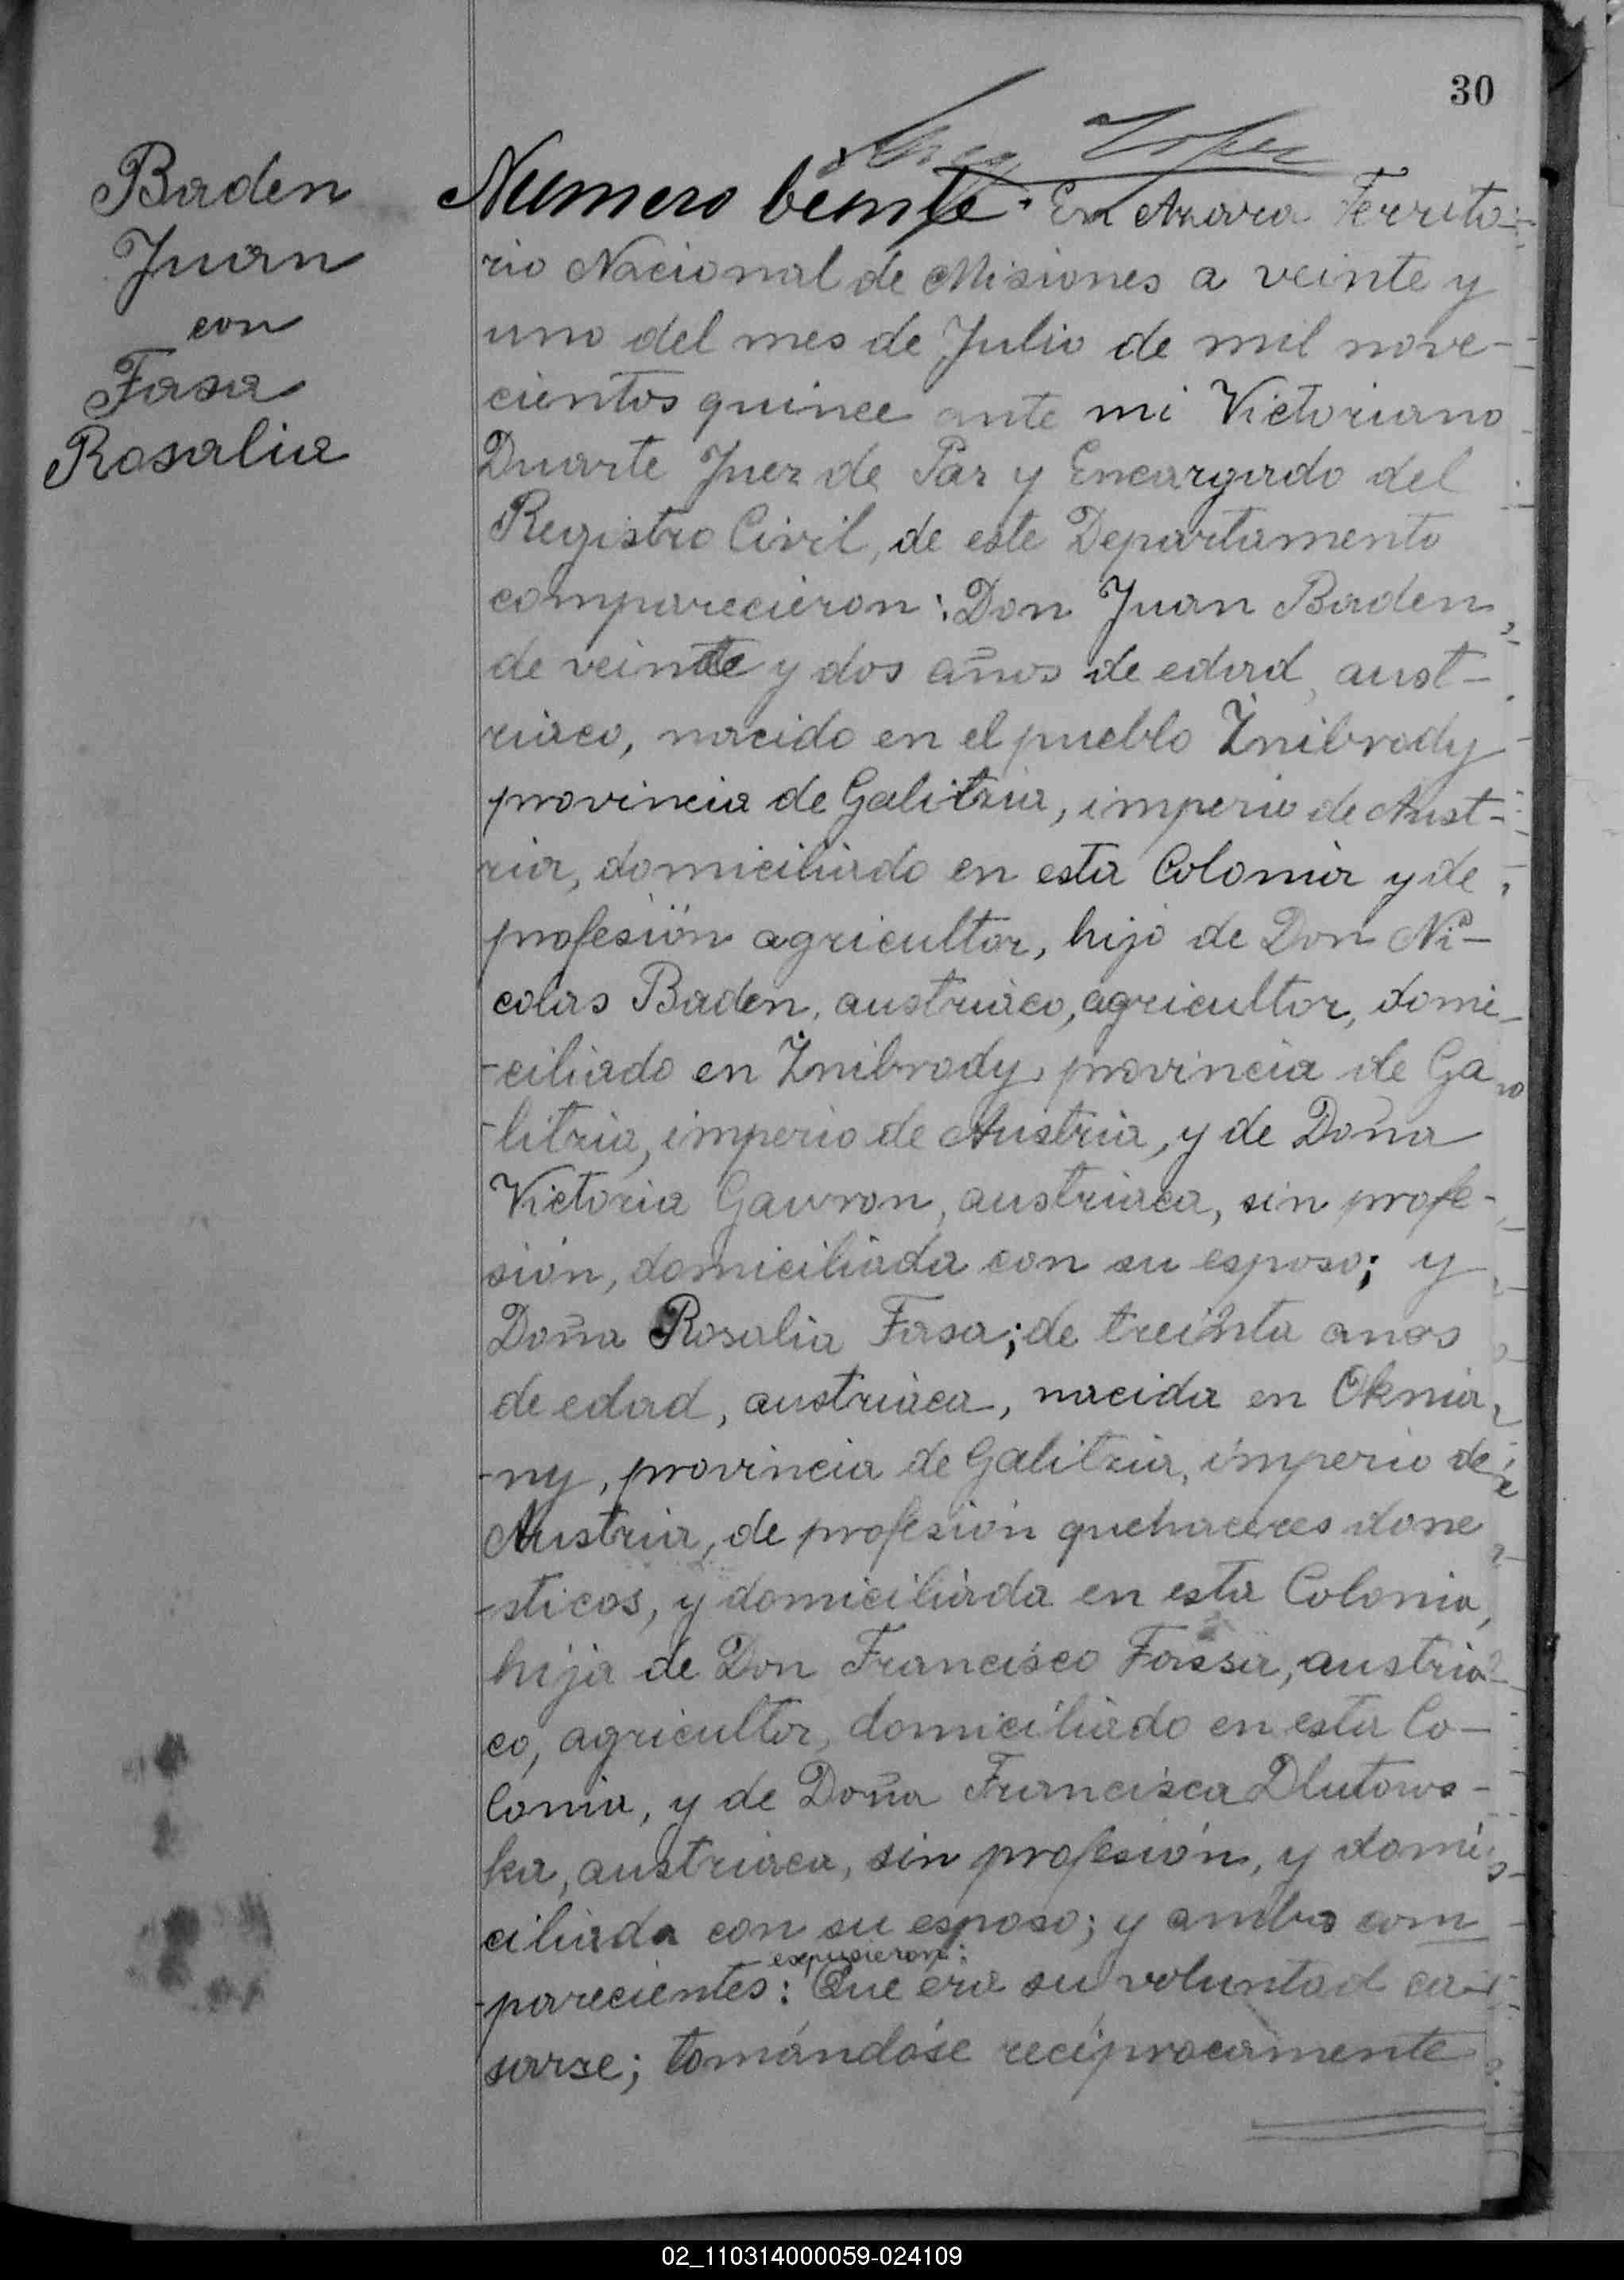 30
Baden
Juan
con
Fasa
Rosalia
Numero beinte. En Azara Territo-
rio Nacional de Misiones a veinte y
uno del mes de Julio de mil nove-
cientos quince ante mi Victoriano
Duarte Juez de Paz y Encargado del
Registro Civil, de este Departamento
comparecieron: Don Juan Baden,
de veinte y dos años de edad, aust-
riaco, nacido en el pueblo Znibrody
provincia de Galitzia, imperio de Aust-
ria, domiciliado en esta Colonia y de
profesión agricultor, hijo de Don Ni-
colas Baden, austriaco, agricultor, domi-
-ciliado en Znibrody, provincia de Ga
-litzia, imperio de Austria, y de Doña
Victoria Gavron, austriaca, sin profe-
sión, domiciliada con su esposo; y
Doña Rosalia Fasa; de treinta anos
de edad, austriaca, nacida en Oknia
-ny, provincia de Galitzia, imperio de
Austria, de profesión quehaceres dome
-sticos, y domiciliada en esta Colonia,
hija de Don Francisco Fassa, austria-
co, agricultor, domiciliado en esta Co-
lonia, y de Doña Francisca Dlutows-
ka, austriaca, sin profesión, y domi
ciliada con su esposo; y ambos com
expusieron:
-parecientes: Que era su voluntad ca-
sarse; tomándose recíprocamente
02_110314000059-024109